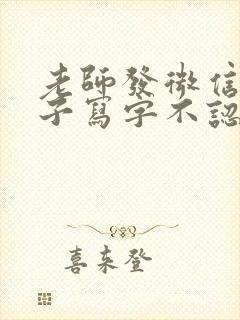 老師發微信
子寫字不認
喜来登